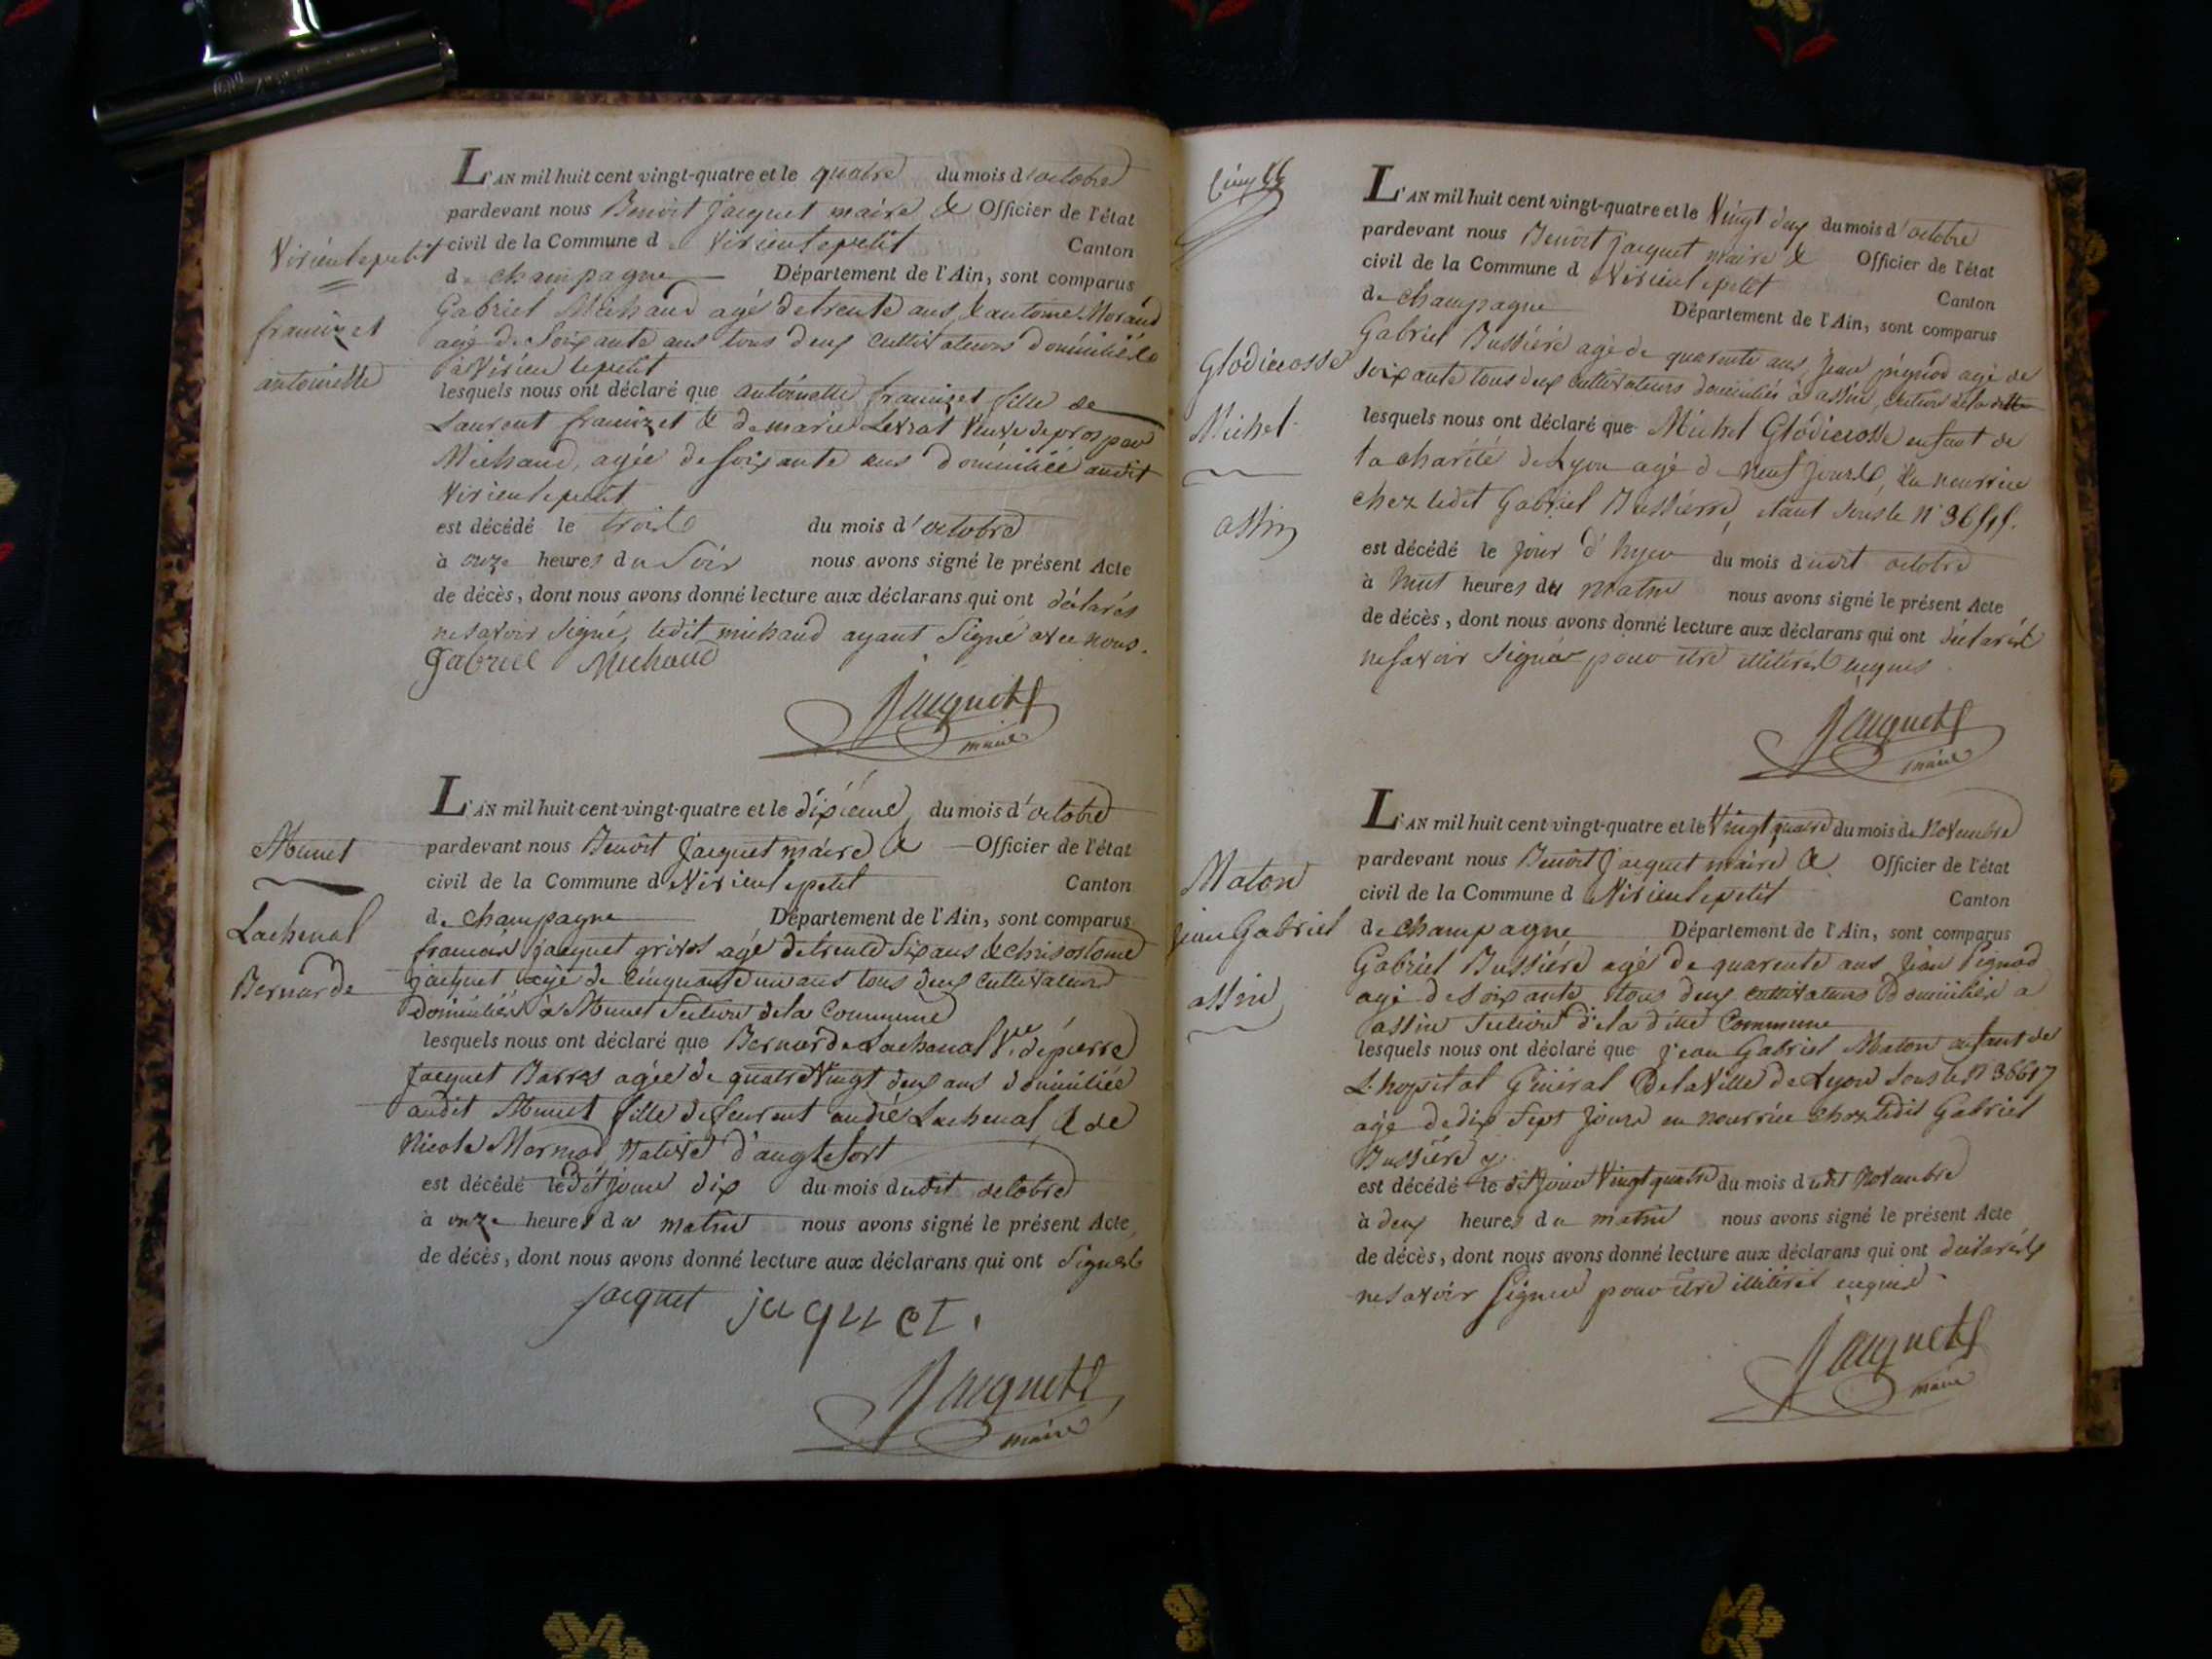 Virieu le petit
francizet
antoinette
L'AN mil huit cent vingt-quatre et le quatre du mois d'octobre
pardevant nous Benoit Jacquet maire & Officier de l'état
civil de la Commune d Virieu le petit Canton
de champagne Département de l'Ain, sont comparus
Gabriel Michaud agé de trente ans, & antoine Morand
agé de Soixante ans tous deux cultivateurs domiciliés
à Virieu le petit
lesquels nous ont déclaré que antoinette francizet fille de
Laurent francizet & de marie Levrat Veuve de prospar
Michaud, agée de soixante ans domiciliée audit
Virieu le petit
est décédé le trois du mois d'octobre
à onze heures du Soir nous avons signé le présent Acte
de décès, dont nous avons donné lecture aux déclarans qui ont déclarés
ne savoir signé, ledit michaud ayant Signé avec nous.
Gabriel Michaud
Jacquet
maire
Munet
Lachenal
Bernarde
L'AN mil huit cent vingt-quatre et le dixieme du mois d'octobre
pardevant nous Benoit Jacquet maire & Officier de l'état
civil de la Commune d Virieu le petit Canton
de champagne Département de l'Ain, sont comparus
francois Jacquet grivos agé de trente Six ans & chrisostome
jacquet agé de Cinquante un ans tous deux cultivateurs
Domiciliés à Munet Section de la Commune
lesquels nous ont déclaré que Bernarde Lachenal Ve. de pierre
Jacquet Barras agée de quatre Vingt deux ans domiciliée
audit Munet fille de feu André Lachenal & de
Nicole Mormod Native d'anglefort
est décédé ledit jour dix du mois dudit octobre
à onze heures du matin nous avons signé le présent Acte
de décès, dont nous avons donné lecture aux déclarans qui ont Signés
jacquet jaquet.
Jacquet
maire
Glodicrosse
Michel
assin
L'AN mil huit cent vingt-quatre et le Vingt deux du mois d'octobre
pardevant nous Benoit Jacquet maire & Officier de l'état
civil de la Commune d Virieu le petit Canton
de champagne Département de l'Ain, sont comparus
Gabriel Bussiére agé de quarente ans, Jean pignod agé de
Soixante tous deux cultivateurs domiciliés à assin, Section de la ditte
lesquels nous ont déclaré que Michel Glodicrosse enfant de
la charité de Lyon agé de neuf jours, en nourrice
chez ledit Gabriel Bussierre, etant sous le N°
est décédé le jour d'hyer du mois dudit octobre
à huit heures du matin nous avons signé le présent Acte
de décès, dont nous avons donné lecture aux déclarans qui ont déclarés
ne savoir Signér pour etre illitérés enquis
Jacquet
maire
Maton
jean Gabriel
assin
L'AN mil huit cent vingt-quatre et le Vingt quatre du mois de Novembre
pardevant nous Benoit Jacquet maire & Officier de l'état
civil de la Commune d Virieu le petit Canton
de champagne Département de l'Ain, sont comparus
Gabriel Bussiére agé de quarente ans Jean Pignod
agé de soixante tous deux cultivateurs domiciliés a
assin Section de la ditte Commune
lesquels nous ont déclaré que jean Gabriel Maton enfant de
L'hopital Général De la Ville de Lyon Sous le N° 36617
agé de dix Sept jours en nourrice chez ledit Gabriel
Bussiére
est décédé le dit jour Vingt quatre du mois dudit Novembre
à deux heures du matin nous avons signé le présent Acte
de décès, dont nous avons donné lecture aux déclarans qui ont déclarés
ne savoir signer pour etre illitérés enquis
Jacquet
maire